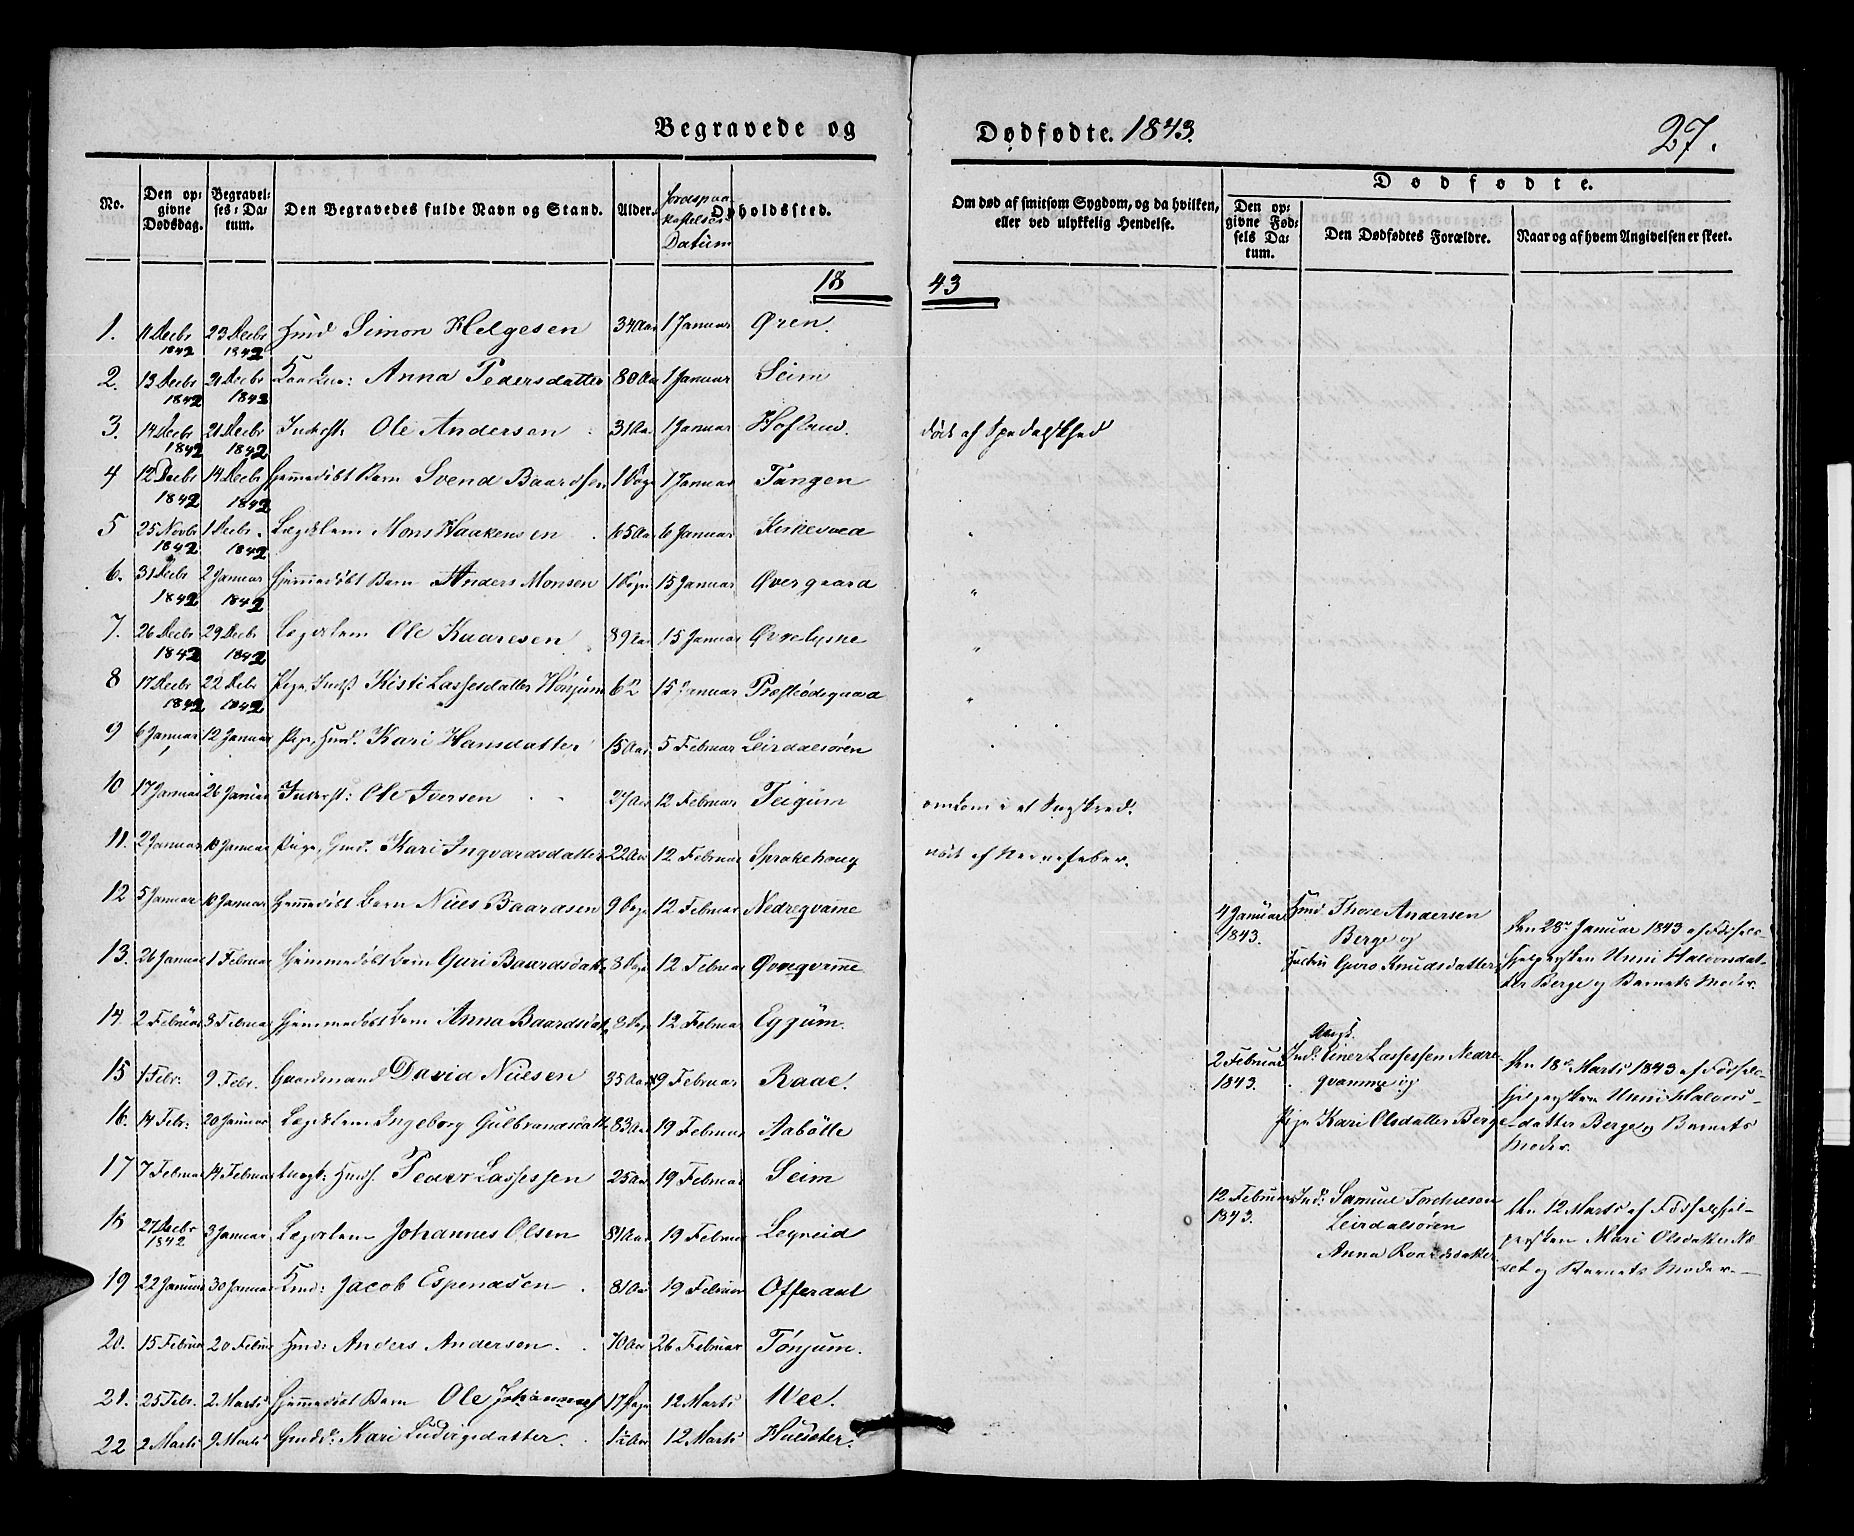 Begravede og Dødfødte. 1843. 27.
No. | Den opgivne Dødsdag. | Begravelses-Datum. | Den Begravedes fulde Navn og Stand. | Alder. | Jordspaakastelses Datum | Opholdssted. | Om død af smitsom Sygdom, og da hvilken, eller ved ulykkelig Hendelse.
Dødfødte.
Den opgivne Fødsels Datum. | Den Dødfødtes Forældre. | Naar og af hvem Angivelsen er skeet.
18 43
1. 11 Decbr 1842 23 Decbr 1842 Hmd Simon Helgesen 34 Aar 1 Januar Øren.
2. 13 Decbr 1842 21 Decbr 1842 Anna Pedersdatter 80 Aar 1 Januar Seim
3. 14 Decbr 1842 21 Decbr 1842 Inderst. Ole Andersen 31 Aar 1 Januar Hofland. død af Spedalskhed
4 12 Decbr 1842 14 Decbr 1842 Hjemmedøbt Barn Svend Baardsen 1 Døgn 1 Januar Tangen
5 25 Novbr 1842 1 Decbr 1842 Lægdslem Mons Haakensen 65 Aar 6 Januar Kirkevold "
6. 31 Decbr 1842 2 Januar 1842 Hjemmedøbt Barn Anders Monsen 1 Døgn 15 Januar Øvergaard "
7. 26 Decbr 1842 29 Decbr 1842 Lægdslem Ole Kaaresen 89 Aar 15 Januar Øvrelysne "
8 17 Decbr 1842 22 Decbr 1842 Pige, Indst Kisti Lassesdatter Hönjum 62 15 Januar Præstødegaard "
9 6 Januar 12 Januar Pige, Hmd. Kari Hansdatter 15 Aar 5 Februar Leirdalsøren
10 17 Januar 26 Januar Inderst: Ole Iversen 37 Aar 12 Februar Teigum omkom i et Sneskred.
11. 2 Januar 10 Januar Pige, Hmd. Kari Ingvardsdatter 22 Aar 12 Februar Sprakehoug død af Nervefeber.
12 5 Januar 10 Januar Hjemmedøbt Barn Niels Baardsen 9 Døgn 12 Februar Nedreqvamme
13. 26 Januar 1 Februar Hjemmedøbt Barn Guri Baardsdatt 8 Døgn 12 Februar Øvreqvamme
14. 2 Februar 3 Februar Hjemmedøbt Barn Anna Baardsdat 8 Døgn 12 Februar Eggum.
15 1 Febr. 9 Febr. Gaardmand David Nielsen 35 Aar 19 Februar Raae.
16. 14 Febr: 20 Januar Lægdslem Ingeborg Gulbrandsdatt 83 Aar 19 Februar Aabølle
17 7 Februar 14 Februar Ungk: Hmds. Peder Lassessen 25 Aar 19 Februar Seim
18 27 Decbr 1842 3 Januar Lægdslem Johannes Olsen 81 Aar 19 Februar Legreid
19 22 Januar 30 Januar Kmd: Jacob Espendsen 81 Aar 19 Februar Offerdal
20. 15 Februar 20 Februar Hmd: Anders Andersen 70 Aar 26 Februar Tönjum.
21. 25 Febr. 2 Marts Hjemmedøbt Barn Ole Johannes 17 Døgn 12 Marts Wee.
22 2 Marts 9 Marts Hmdd. Kari Ludvigsdatter 12 Marts
4 Januar 1843. | Hmd. Thore Andersen Berge og Hustru Guro Knudsdatter | Den 28de Januar 1843 af Fødselshjelpersken Unni Halvorsdatter Berge og Barnets Moder.
2 Februar 1843. | Ungk. Ind. Einer Lassessen Nedreqvamme og Pige Kari Olsdatter Berge | Den 18de Marts 1843 af Fødselshjelpersken Unni Halvorsdatter Berge og Barnets Moder.
12 Februar 1843. | Ind. Samuel Leirdalsøren Anna Roardsdatter | Den 12 Marts af Fødselshjelpersken Mari Olsdatter Næset og Barnets Moder.